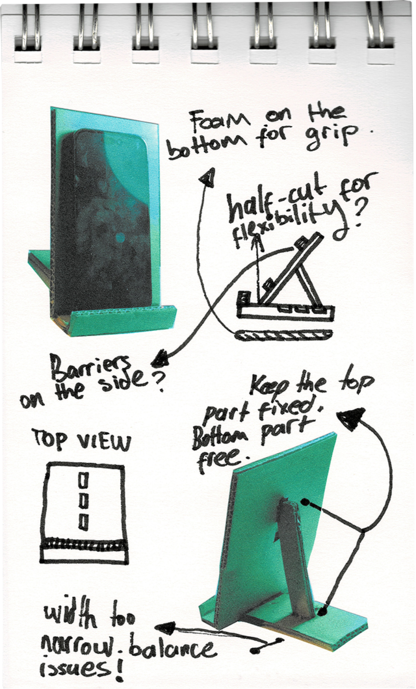 Foam on the
bottom for grip.
half-cut for
flexibility?
Barriers
on the side?
Keep the top
part fixed.
Bottom part
free.
TOP VIEW
width too
narrow. balance
issues!